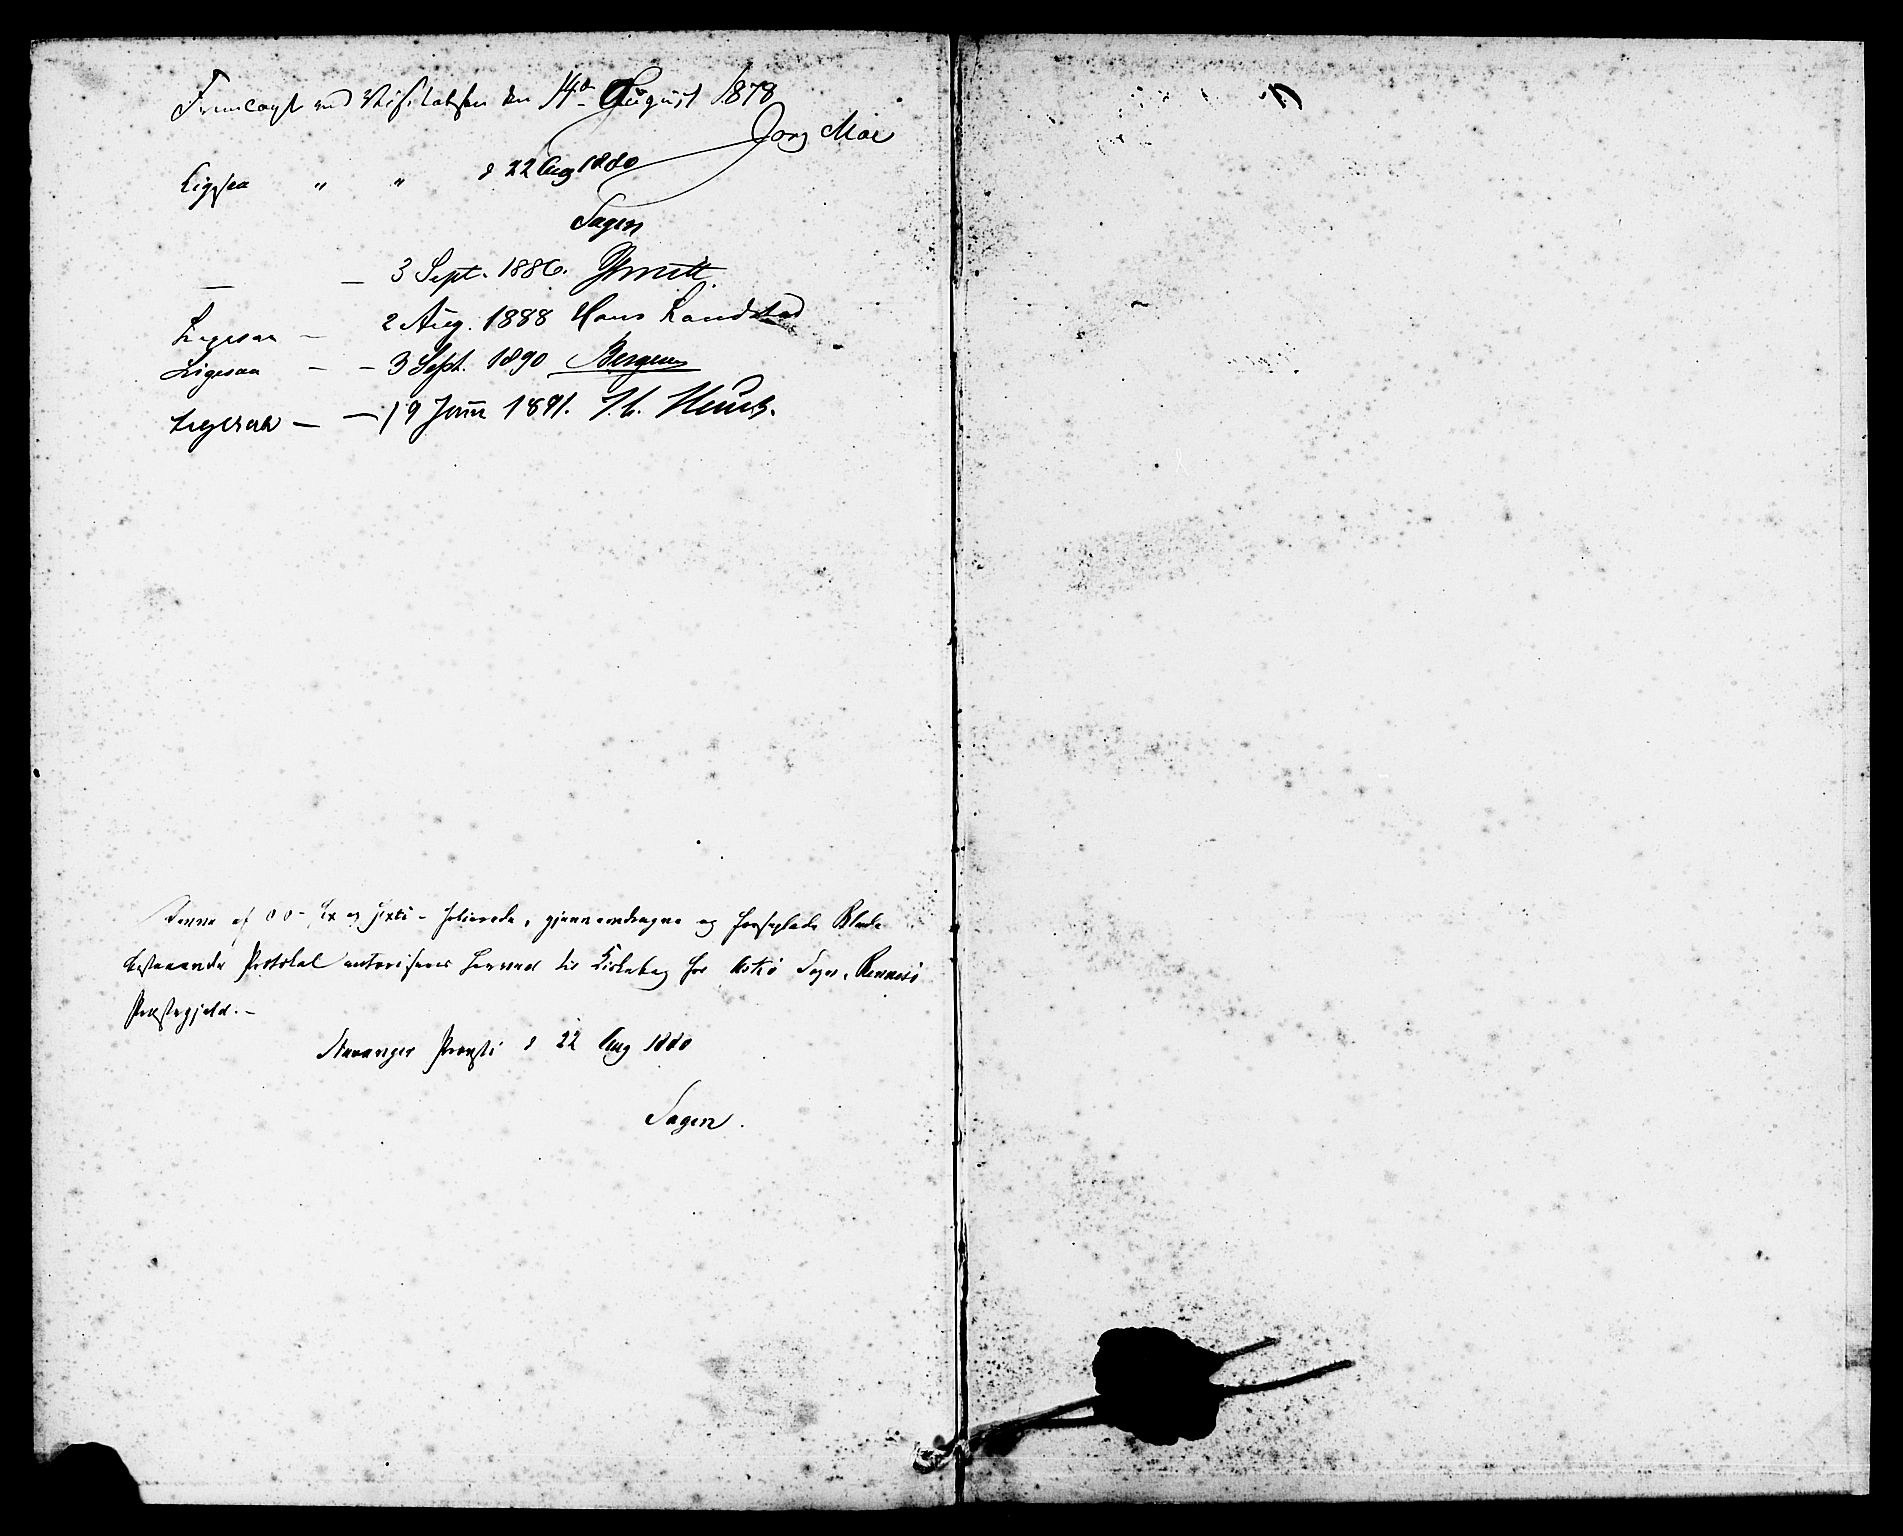 Fremlagt ved Visitatsen den 14de August 1878
Jørg Moe
Ligesaa " " d 22 Aug 1880
Sagen
— — 3 Sept. 1886.
Ligesaa — 2 Aug. 1888 Hans Landstad
Ligesaa — — 3 Sept. 1890 Bergesen
Ligesaa — — 19 Juni 1891. J. C. Heuch.
Denne af 00- sex og sexti - folierede, gjennemdragne og forseglede Blade
bestaaende Protokol autoriseres herved til Kirkebog for Sogn, Rennesø
Præstegjeld. -
Stavanger Provsti d 22 Aug 1880
Sagen.